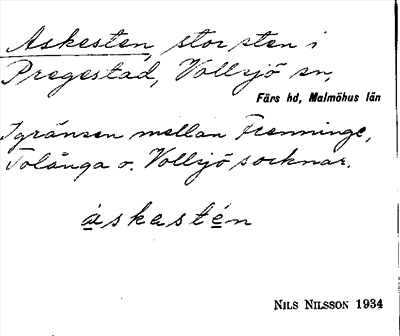 Askesten, stor sten i
Pregestad, Vollsjö sn,
Färs hd, Malmöhus län
I gränsen mellan Frenninge,
Tolånga o. Vollsjö socknar.
áskestén
NILS NILSSON 1934